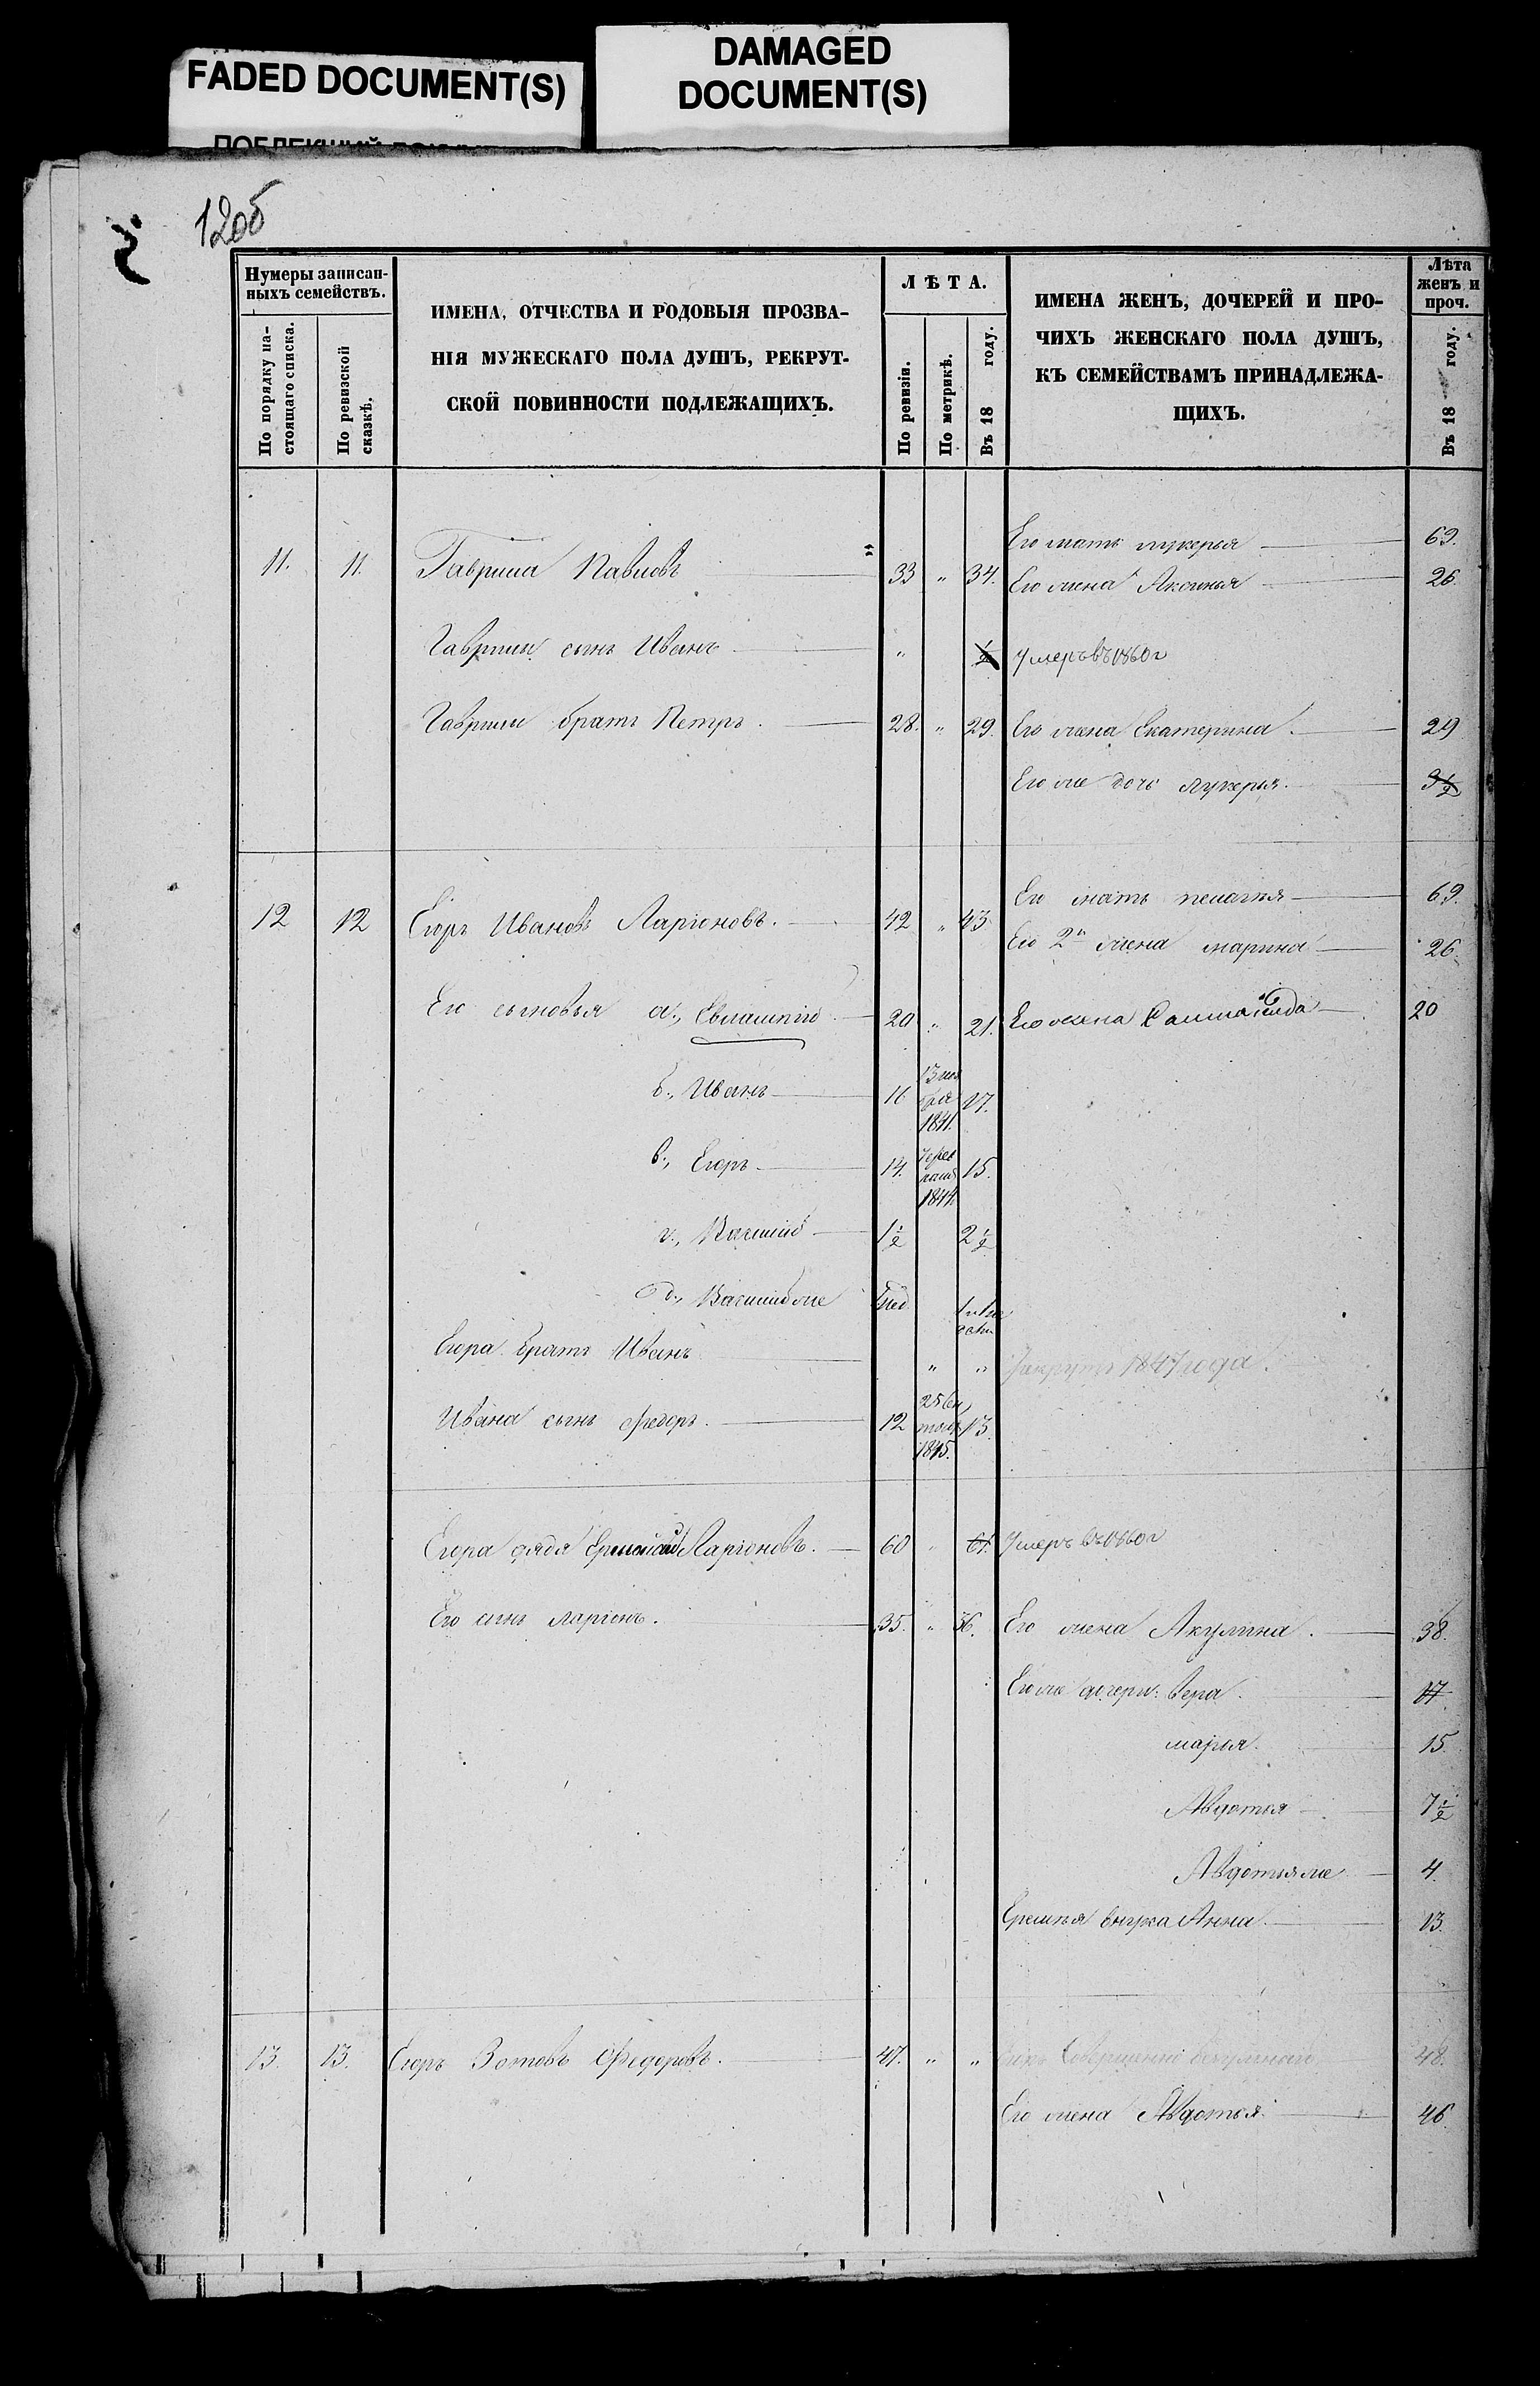 FADED DOCUMENT(S)
DAMAGED
DOCUMENT(S)
120б
Нумеры записан-
ныхъ семействъ.
По порядку на-
стоящаго списка.
По ревизской
сказкѣ.
ИМЕНА, ОТЧЕСТВА И РОДОВЫЯ ПРОЗВА-
НІЯ МУЖЕСКАГО ПОЛА ДУШЪ, РЕКРУТ-
СКОЙ ПОВИННОСТИ ПОДЛЕЖАЩИХЪ.
ЛѢТА.
По ревизіи.
По метрикѣ.
Въ 18 году.
ИМЕНА ЖЕНЪ, ДОЧЕРЕЙ И ПРО-
ЧИХЪ ЖЕНСКАГО ПОЛА ДУШЪ,
КЪ СЕМЕЙСТВАМЪ ПРИНАДЛЕЖА-
ЩИХЪ.
Лѣта
женъ и
проч.
Въ 18 году.
Его мать лукерья 69.
11. 11. Гаврила Павловъ 33 " 34. Его жена Аксинья 26.
Гаврилы сынъ Иванъ " 1/2 Умеръ въ 1860 г
Гаврилы братъ Петръ. 28. " 29. Его жена Екатерина. 29
Его же дочь лукерья. 3 1/2
Его мать пелагея 69.
12 12 Егоръ Ивановъ Ларіоновъ. 42 " 43
Его 2я жена марина 26.
Его сыновья а., Евлампій 20 " 21. Его жена 20
б., Иванъ 16 1841. 17.
в., Егоръ 14. 1844. 15.
г., Василій 1 1/2 2 1/2
д., Василій же
Егора братъ Иванъ " " 1847 года.
Ивана сынъ Федоръ. 12 25 1845. 13.
Егора дядя Ермолай Ларіоновъ. 60 " 61. Умеръ въ 1860 г
Его сынъ ларіонъ. 35. " 36. Его жена Акулина. 38.
Его же дочери: Вера. 17.
марья. 15.
Авдотья 7 1/2
Авдотья же 4.
внучка Анна. 13.
13. 13. Егоръ Зотовъ Федоровъ. 47. " " 48.
Его жена Авдотья. 46.